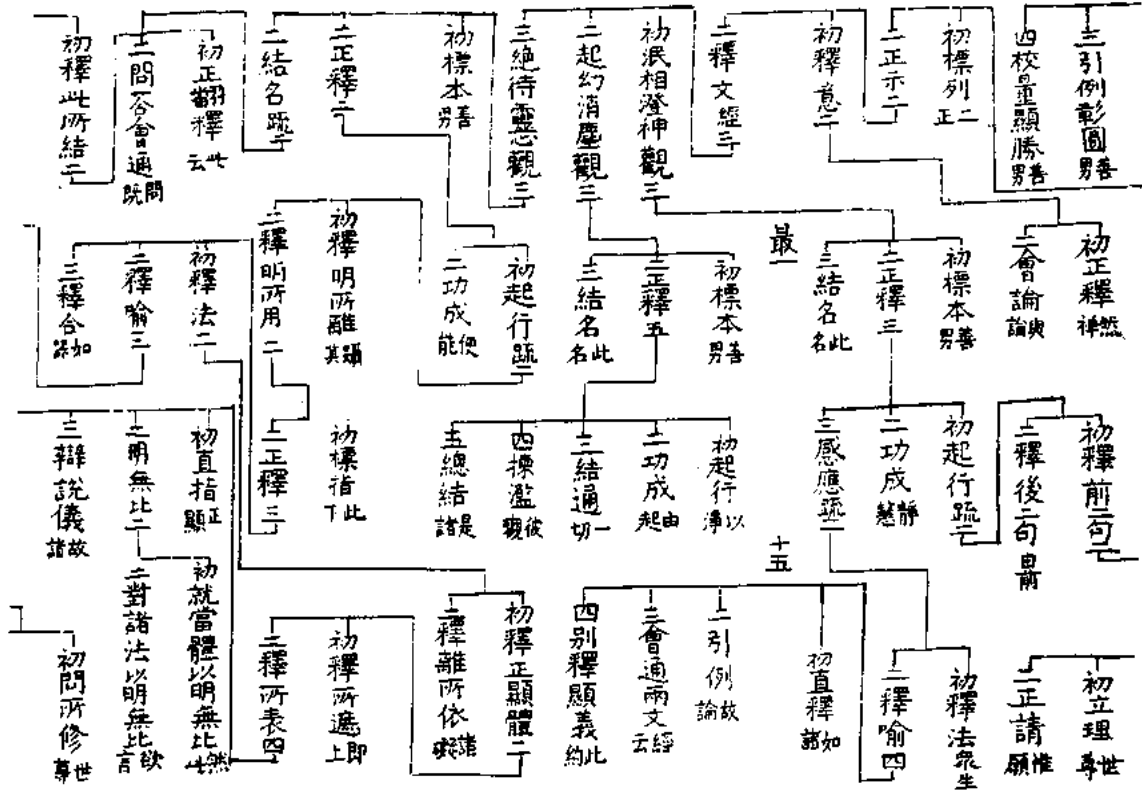 三引例彰圓 善男
四校量顯勝 善男
初標列 二正
二正示二
初釋意二
二釋文經三
初泯相澄神觀三
二起幻消塵觀三
三絕待靈心觀三
初標本 善男
二正釋二
二結名疏二
初正翻釋 此云
二問答會通 問既
初釋此所結二
初正釋 然禪
二會論 與論
初標本 善男
二正釋三
三結名 此名
最一
初標本 善男
二正釋五
三結名 此名
初起行疏二
二功成 便能
初釋明所離 躡其
二釋明所用二
初釋法二
二釋喻三
三釋合 如
初釋前二句二
二釋後二句 由前
初起行疏二
二功成 靜慧
三感應疏二
十五
初起行 以淨
二功成 由起
三結通 一切
四揀濫 彼觀
五總結 是諸
初標指 此下
二正釋三
初直指 正顯
二明無比二
三辯說儀 故諸
初立理 世尊
二正請 惟願
初釋法 衆生
二釋喻四
初直釋 如諸
二引例 故論
三會通兩文 經云
四別釋顯義 此約
初釋正顯體二
二釋離所依 諸礙
初釋所遮 即上
二釋所表四
初就當體以明無比 然此
二對諸法以明無比 欲言
初問所修 世尊